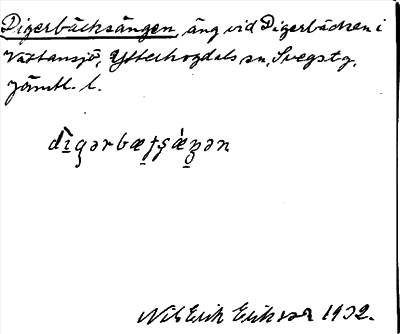 Digerbäcksängen, äng vid Digerbäcken i
Vattansjö, Ytterhogdals sn, Svegs tg,
Jämtl. l.
dìgərbæƭʂǽŋən
Nils Erik Eriksson 1932.